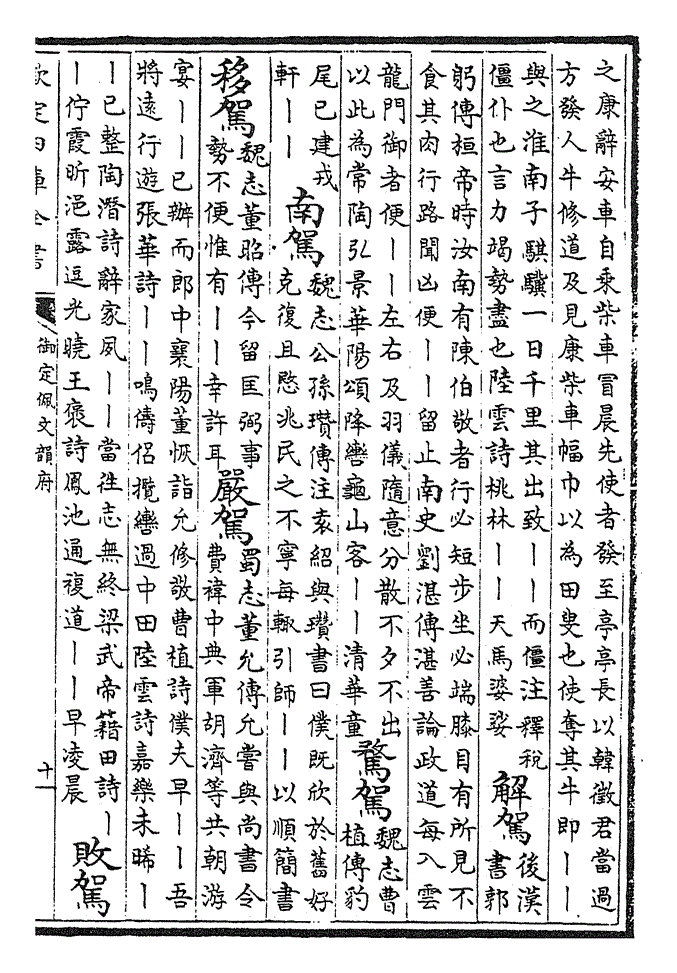 之康辭安車自乘柴車冒晨先使者發至亭亭長以韓徵君當過
方發人牛修道及見康柴車幅巾以為田叟也使奪其牛即丨丨
與之淮南子騏驥一日千里其出致丨丨而僵注釋税
僵仆也言力竭勢盡也陸雲詩桃林丨丨天馬婆娑
解駕
後漢
書郭
躬傳桓帝時汝南有陳伯敬者行必短步坐必端膝目有所見不
食其肉行路聞凶便丨丨留止南史劉湛傳湛善論政道每入雲
龍門御者便丨丨左右及羽儀隨意分散不夕不出
以此為常陶弘景華陽頌降轡龜山客丨丨清華童
騖駕
魏志曹
植傳豹
尾已建戎
軒丨丨
南駕
魏志公孫瓚傳注袁紹與瓚書曰僕既欣於舊好
克復且愍兆民之不寧每輒引師丨丨以順簡書
移駕
魏志董昭傳今留匡弼事
勢不便惟有丨丨幸許耳
嚴駕
蜀志董允傳允嘗與尚書令
費禕中典軍胡濟等共朝游
宴丨丨已辦而郎中襄陽董恢詣允修敬曹植詩僕夫早丨丨吾
將遠行遊張華詩丨丨鳴儔侶攬轡過中田陸雲詩嘉樂未晞丨
丨已整陶潛詩辭家夙丨丨當往志無終梁武帝藉田詩丨
丨佇霞昕浥露逗光曉王褒詩鳳池通複道丨丨早凌晨
敗駕
欽定四庫全書
御定佩文韻府
十